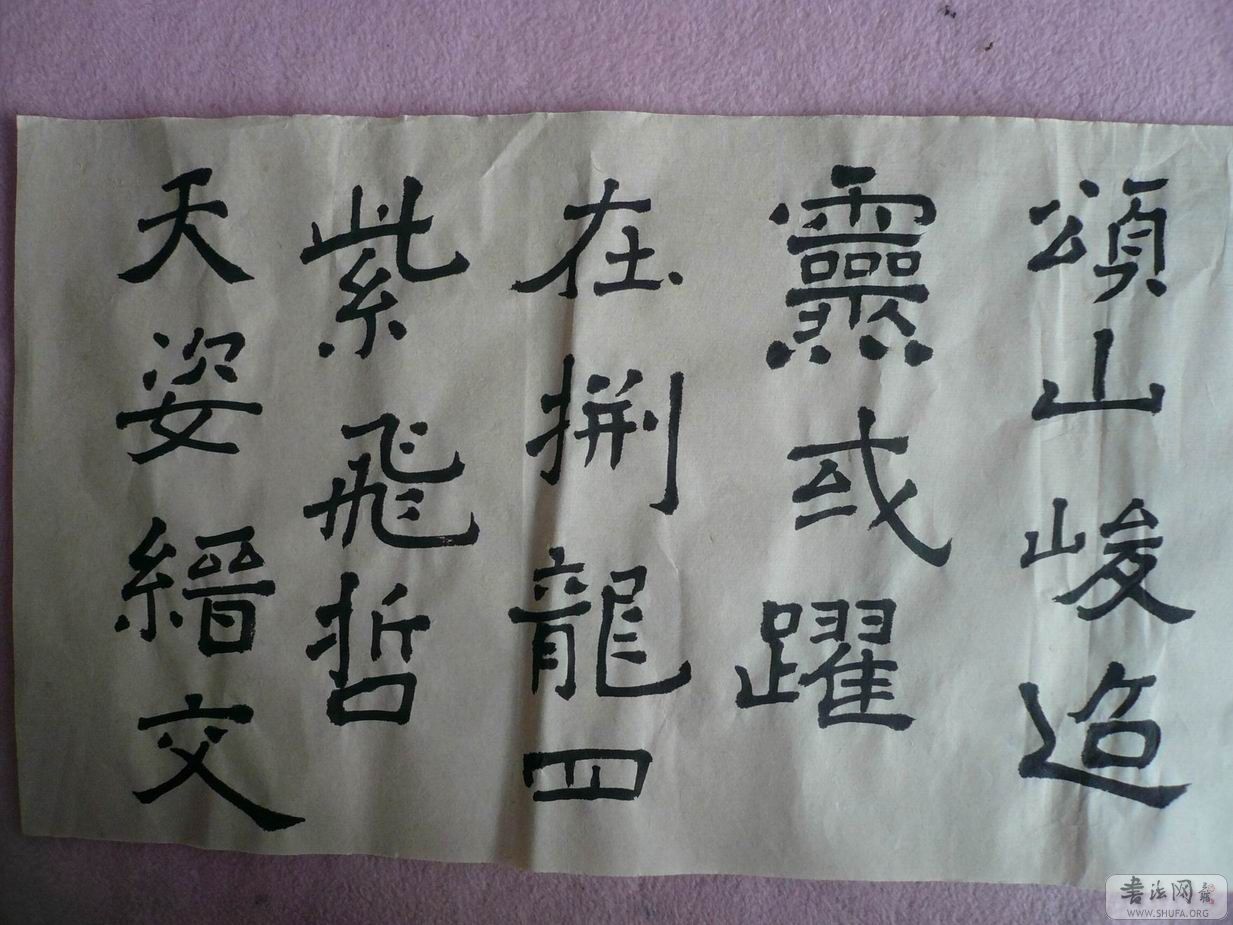 頌山峻
靈或躍
在捌龍四
紫飛哲
天姿縉交
書法网
WWW.SHUFA.ORG